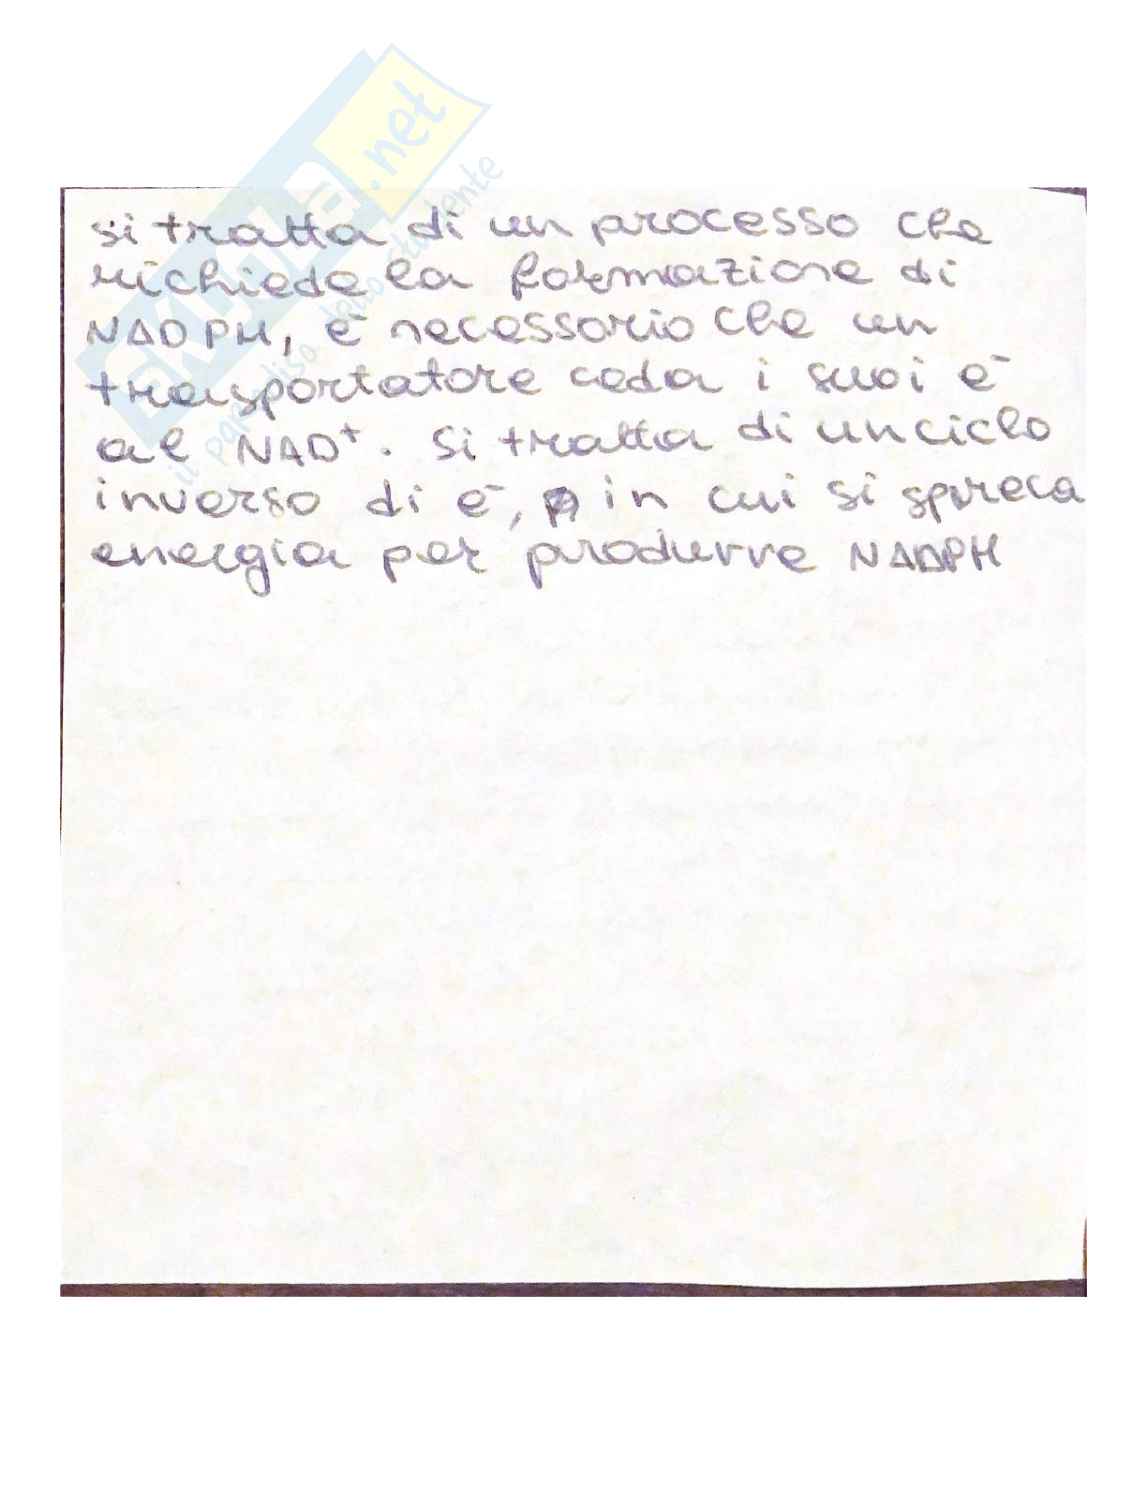 SKUOLA.net
il paradiso dello studente
si tratta di un processo che
richiede la formazione di
NADPH, è necessario che un
trasportatore ceda i suoi e⁻
al NAD⁺. Si tratta di un ciclo
inverso di e⁻, in cui si spreca
energia per produrre NADPH